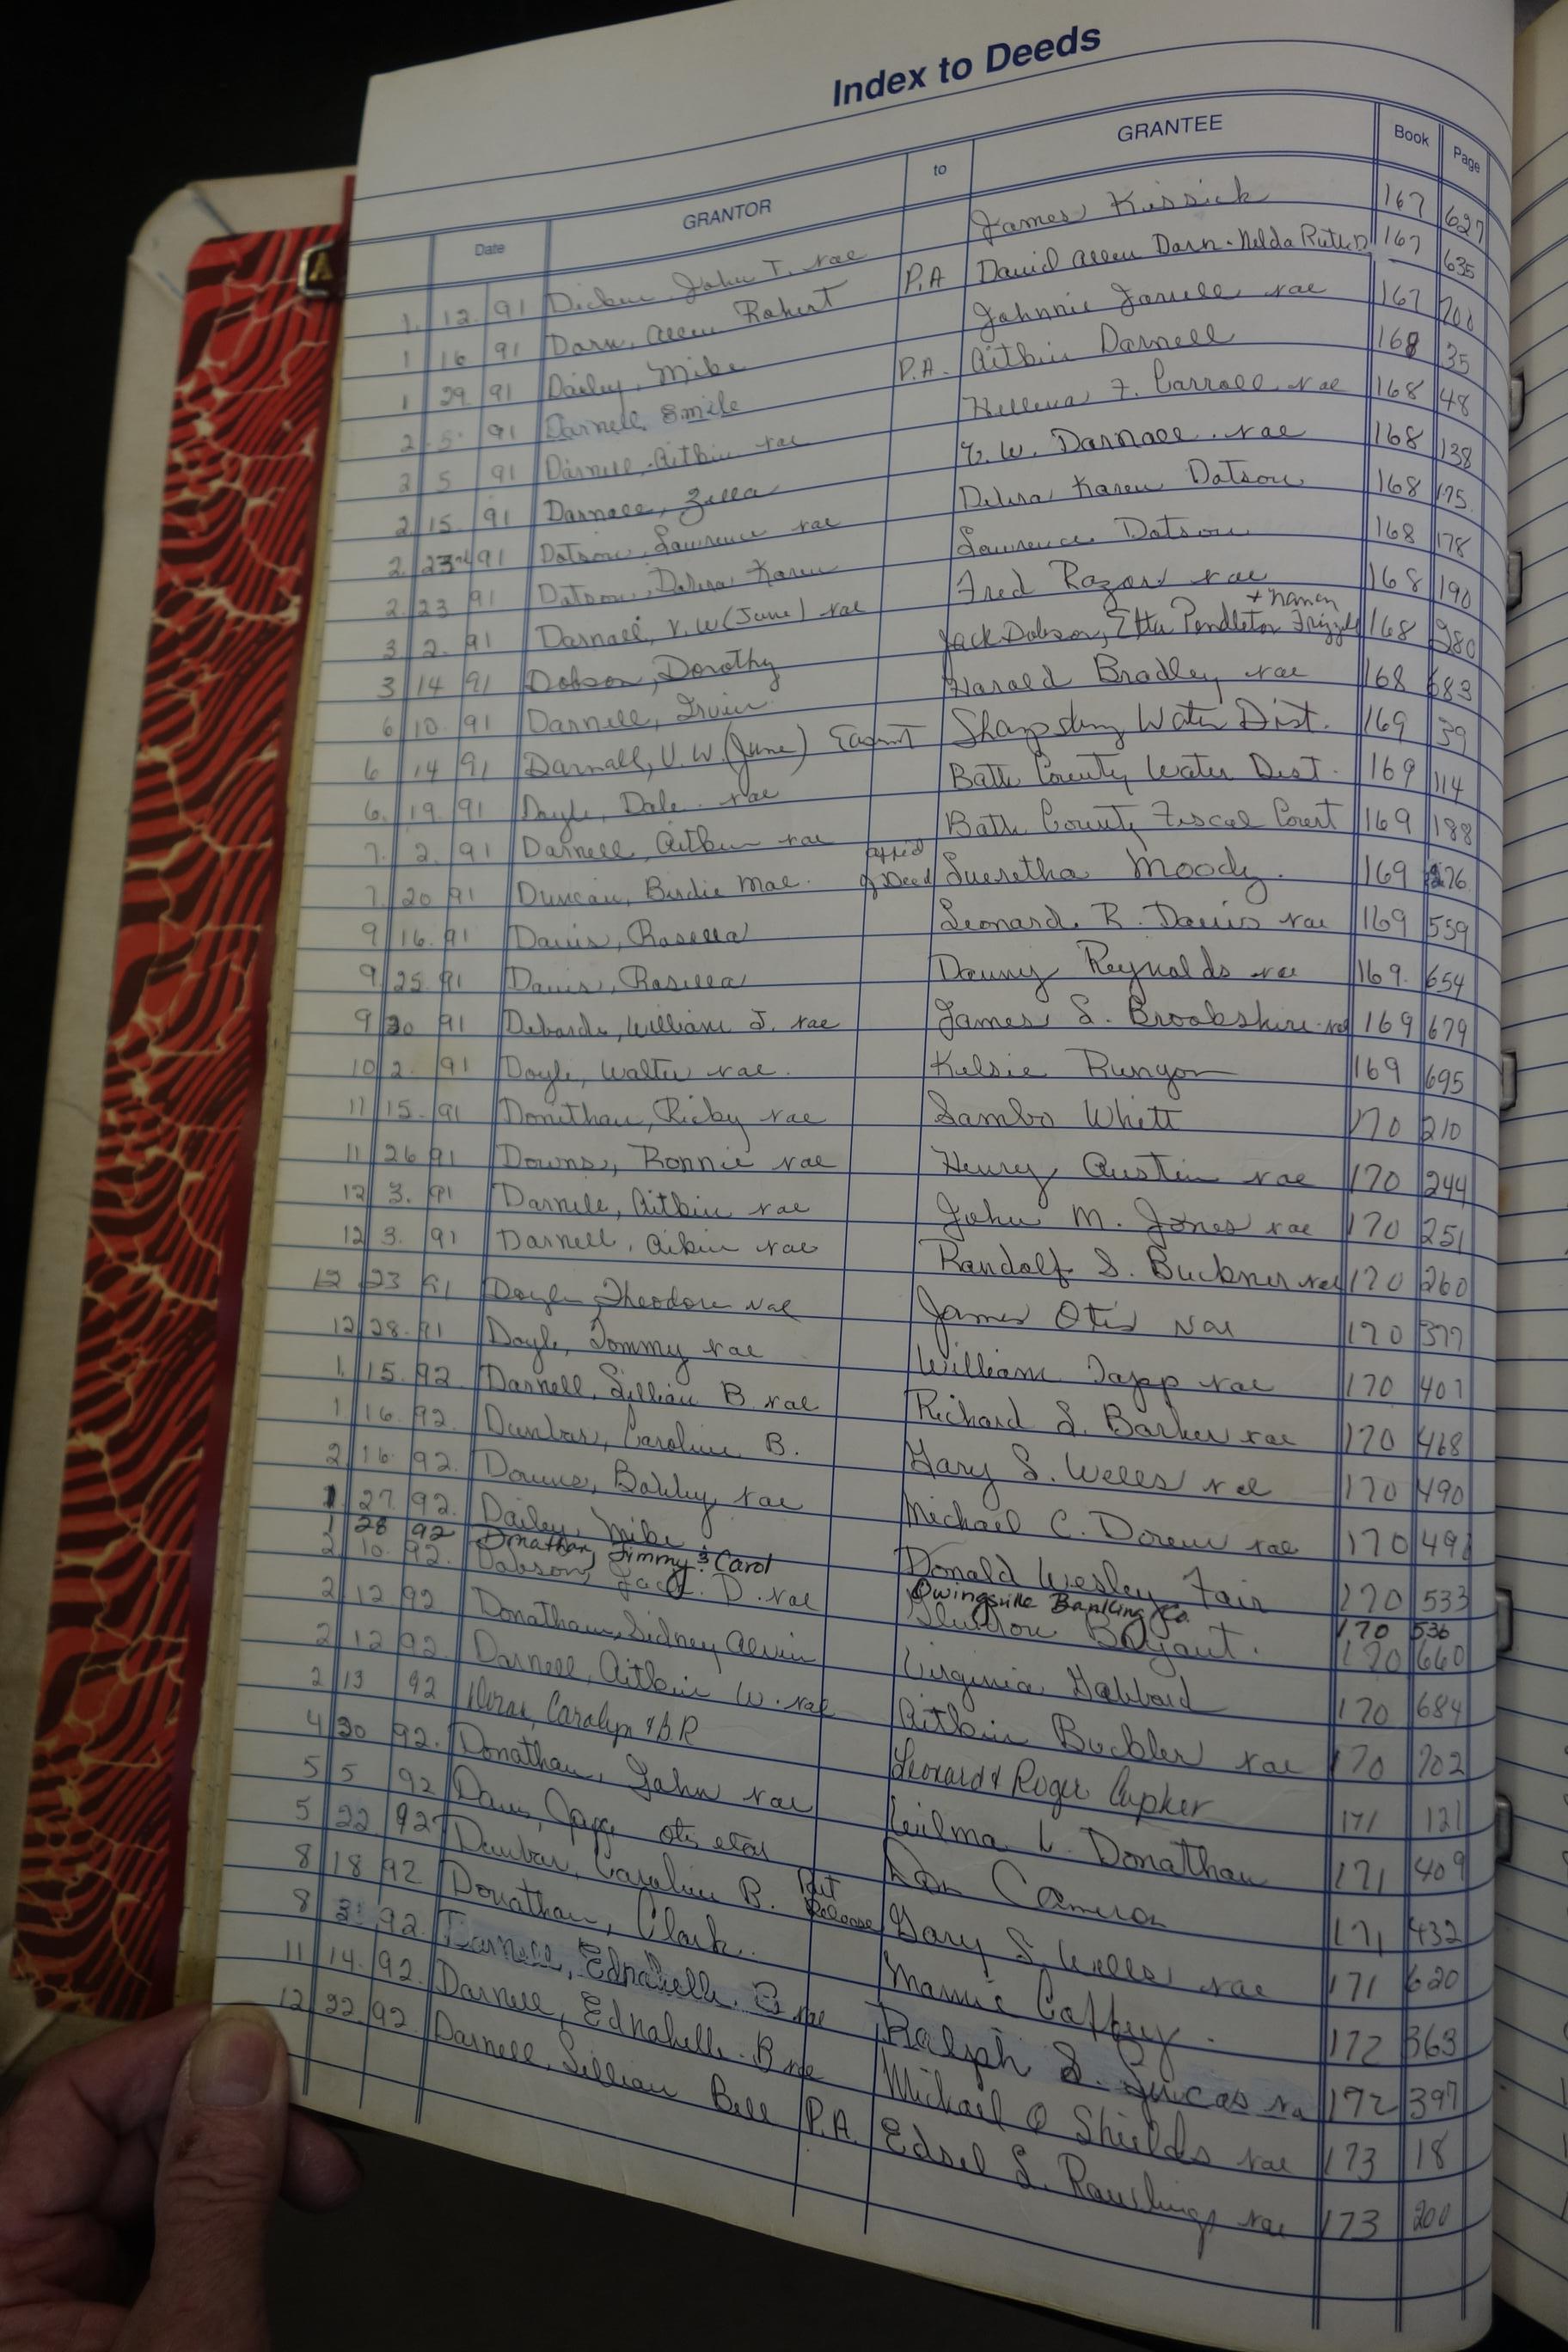 Index to Deeds
Date GRANTOR to GRANTEE Book Page
1. 12. 91 John T. rae James Kissick 167 627
1 16 91 Darn, Allen Robert P.A David Allen Darn - Nelda Ruth D. 167 635
1 29 91 Dailey, Mike Johnnie rae 167 700
2 5 91 Darnell, Emile P.A. Aitkin Darnell 168 35
2 5 91 Darnell, Aitkin rae F. Carroll rae 168 48
2 15 91 Darnall, Zella V. W. Darnall rae 168 138
2. 23rd 91 Datson, Lawrence rae Karen Datson 168 175
2. 23 91 Datson, Karen Lawrence Datson 168 178
3 2. 91 Darnall, V. W (June) rae Fred Razor rae 168 190
3 14 91 Dobson, Dorothy Jack Dobson, Etta Pendleton + Nancy Frizzell 168 280
6 10. 91 Darnell, Irvin Harold Bradley rae 168 683
6 14 91 Darnall, V. W. (June) Easmt Sharpsburg Water Dist. 169 39
6. 19. 91 Doyle, Dale rae Bath County Water Dist. 169 114
7. 2. 91 Darnell, Aitkin rae Bath County Fiscal Court 169 188
7. 20 91 Duncan, Birdie Mae. Affid of Deed Lueretha Moody. 169 276
9 16. 91 Davis, Rosella Leonard R. Davis rae 169 559
9 25. 91 Davis, Rosella Danny Reynolds rae 169. 654
9 30 91 William J. rae James S. Brookshire rae 169 679
10 2. 91 Doyle, Walter rae. Kelsie Runyon 169 695
11 15. 91 Donithan, Ricky rae Sambo Whitt 170 210
11 26 91 Downs, Ronnie rae Henry Austin rae 170 244
12 3. 91 Darnell, Aitkin rae John M. Jones rae 170 251
12 3. 91 Darnell, Aikin rae Randolf S. Buckner rae 170 260
12 23 91 Doyle, Theodore rae James Otis rae 170 377
12 28. 91 Doyle, Tommy rae William Tapp rae 170 407
1. 15. 92. Darnell, Lillian B. rae Richard S. Barker rae 170 468
1 16. 92. Dunbar, Caroline B. Gary S. Wells rae 170 490
2 16 92. Downs, Bobby rae Michael C. rae 170
1 27. 92. Dailey, Mike Donald Wesley Fair 170 533
1 28 92 Donathan, Jimmy & Carol Owingsville Banking Co. 170 536
2 10. 92. Dobson, Jack D. rae Bryant. 170 660
2 12 92 Donathan, Sidney Alvin Virginia 170 684
2 12 92. Darnell, Aitkin W. rae Aitkin Buckler rae 170 702
2 13 92 Carolyn & B.R Leonard & Roger 171 121
4 30 92. Donathan, John rae Wilma L. Donathan 171 409
5 5 92 Otis etal Don Cameron 171 432
5 22. 92. Dunbar, Caroline B. Release Gary S. Wells rae 171 620
8 18 92 Donathan, Clark. Mamie 172 363
8 3 92. Darnell, Ednabelle B rae Ralph S. Lucas 172 397
11 14. 92. Darnell, Ednabelle B rae Michael Shields rae 173 18
12 22. 92. Darnell, Lillian Bell P.A. Edsel S. Rawlings rae 173 200